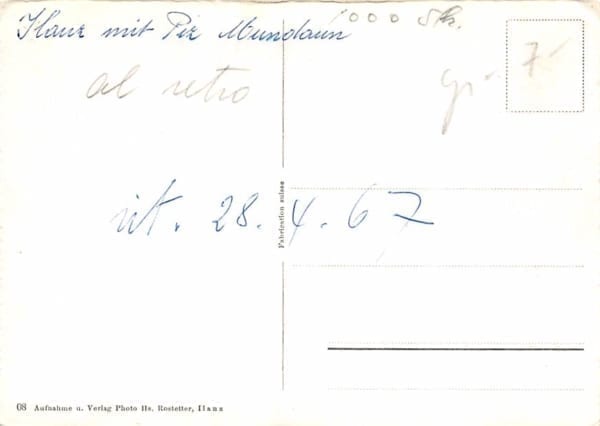 Ilanz mit Piz Mundaun
1000 Stk.
al retro
gr. 7.-
it. 28. 4. 67
Fabrication suisse
08 Aufnahme u. Verlag Photo Hs. Rostetter, Ilanz